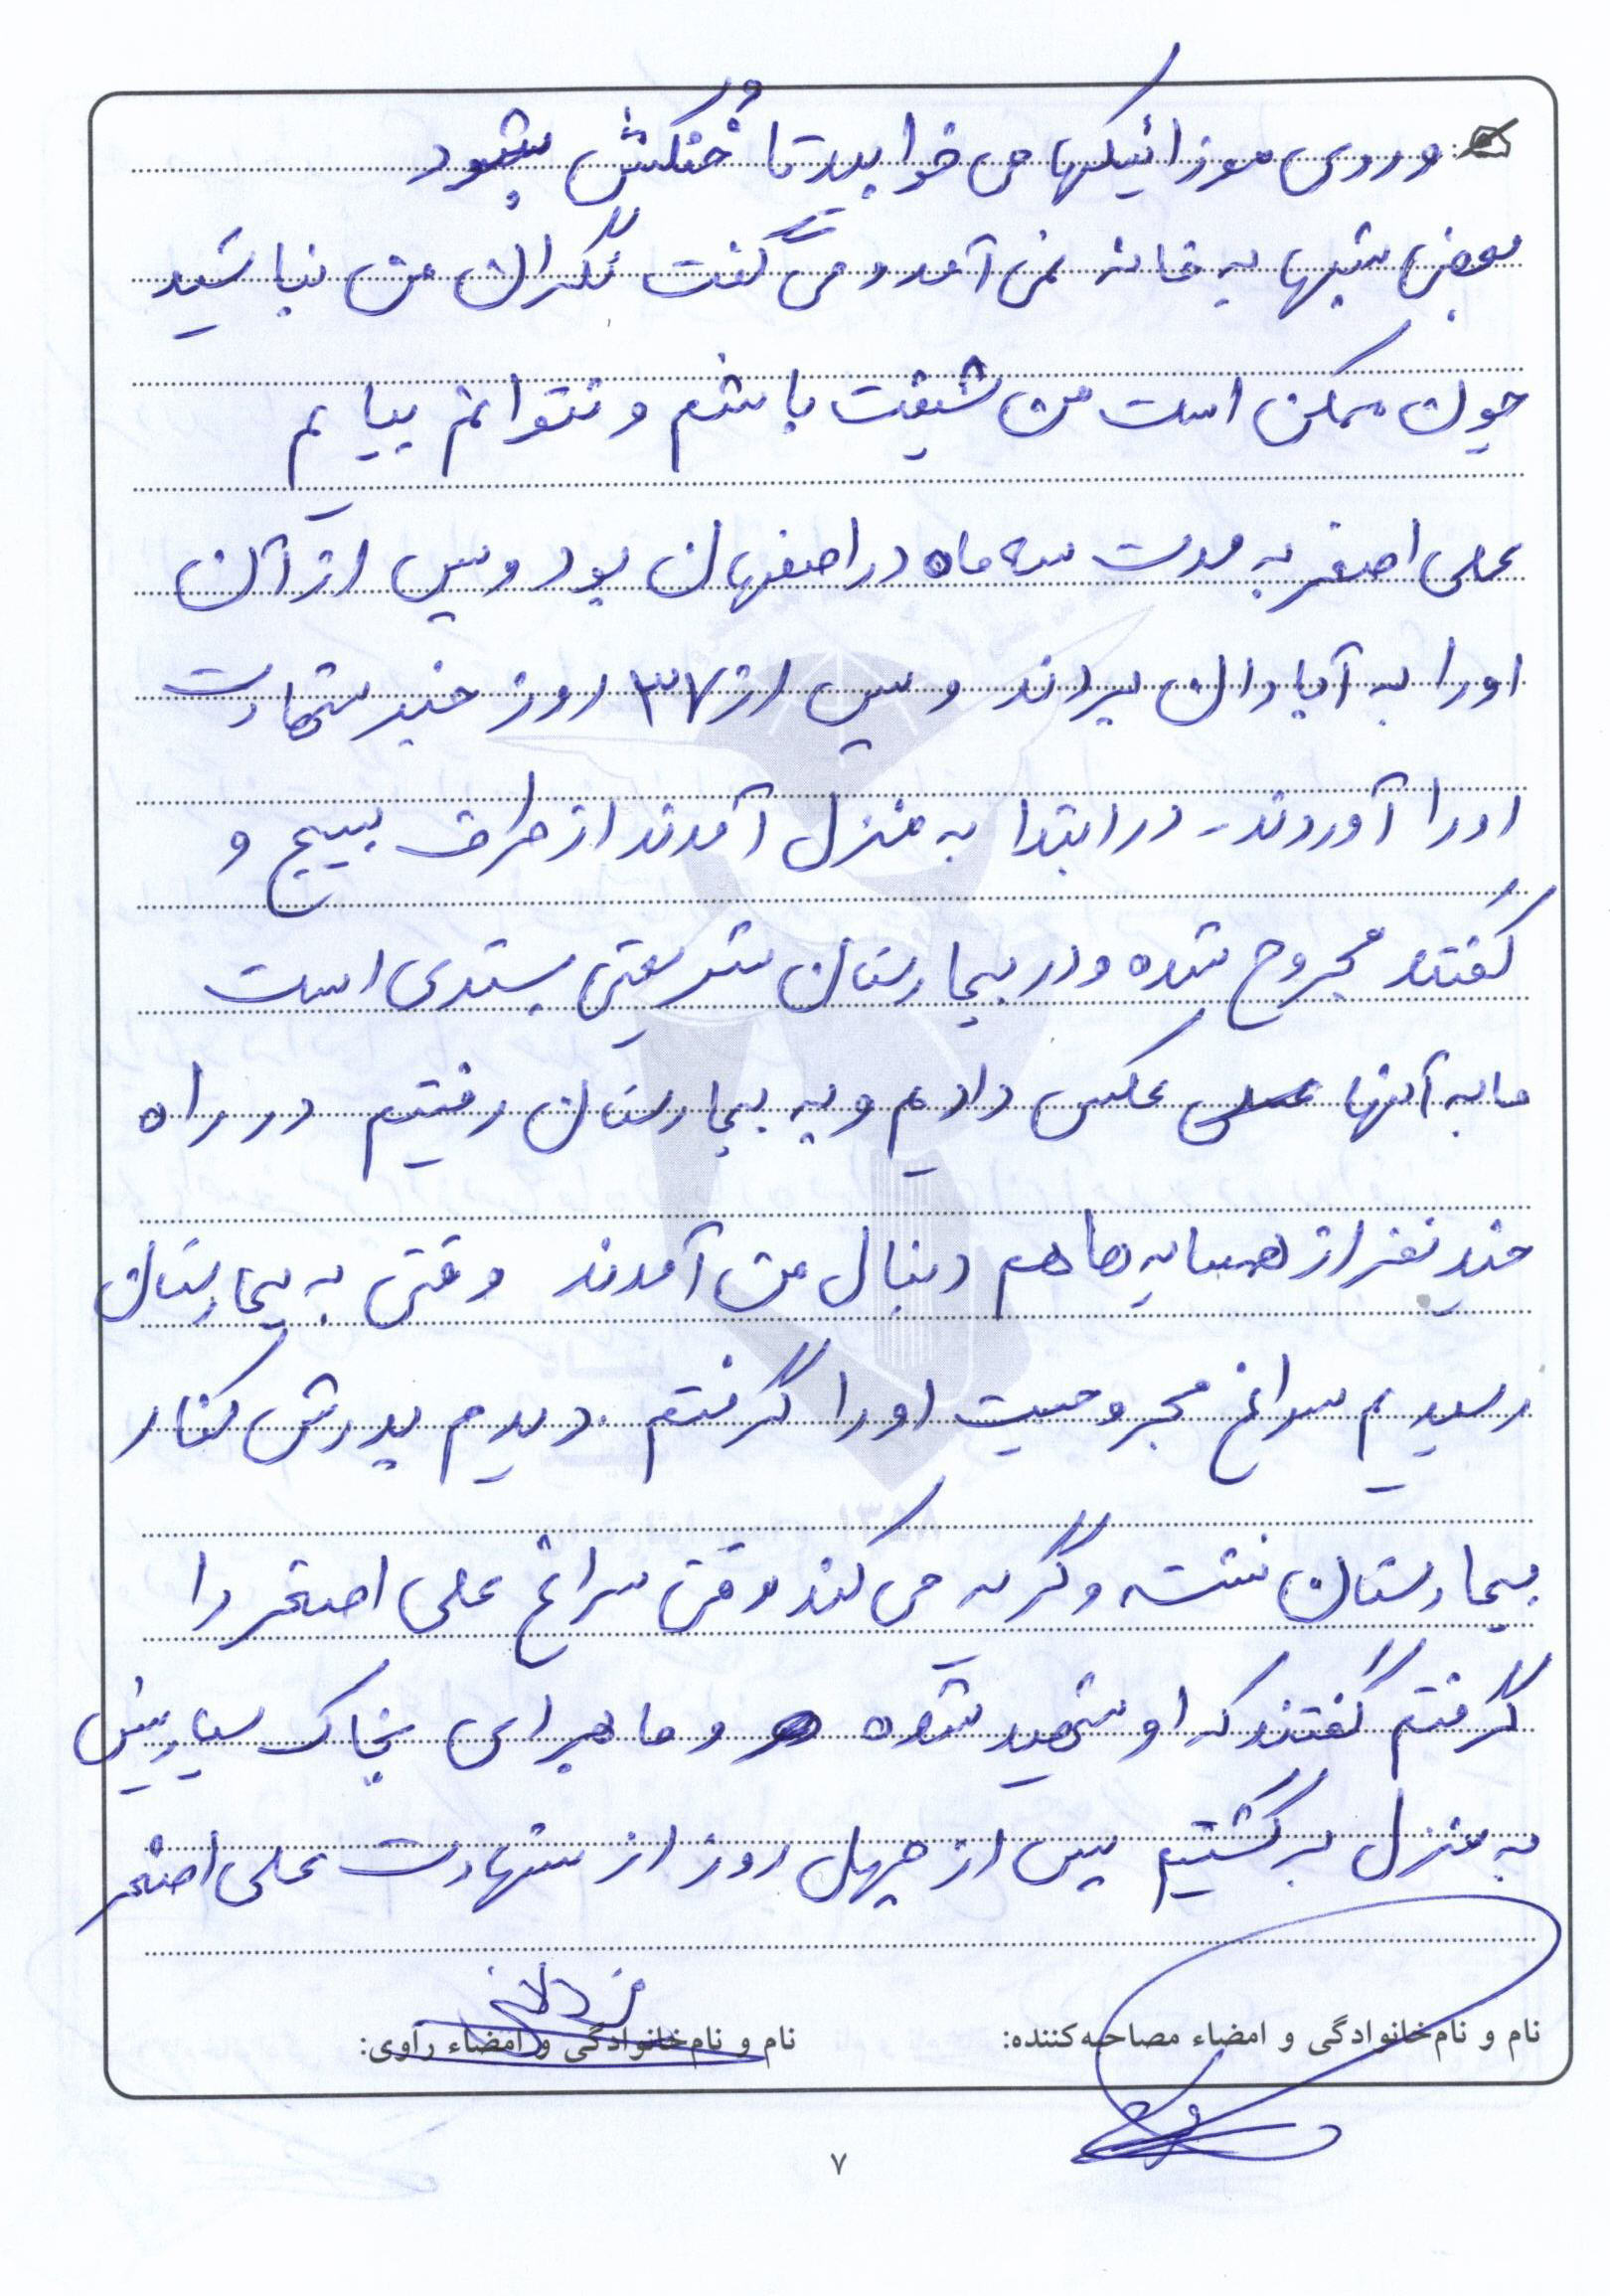 و روی موزائیکها می خوابید تا خنکش بشود و
بعضی شبها به خانه نمی آمد و می گفت نگران من نباشید
چون ممکن است من شیفت باشم و نتوانم بیایم
علی اصغر به مدت سه ماه در اصفهان بود و پس از آن
او را به آبادان بردند و پس از ۳۷ روز خبر شهادت
او را آوردند - در ابتدا به منزل آمدند از طرف بسیج و
گفتند مجروح شده و در بیمارستان شریعتی بستری است
ما به آنها عکس دادیم و به بیمارستان رفتیم در راه
چند نفر از همسایه ها هم دنبال من آمدند وقتی به بیمارستان
رسیدیم سراغ مجروحیت او را گرفتم . دیدم پدرش کنار
بیمارستان نشسته و گریه می کند وقتی سراغ علی اصغر را
گرفتم گفتند که او شهید شده و ما برای بخاک سپاریش
به منزل برگشتیم پس از چهل روز از شهادت علی اصغر
نام و نام‌خانوادگی و امضاء مصاحبه‌کننده:
نام و نام‌خانوادگی و امضاء راوی:
۷